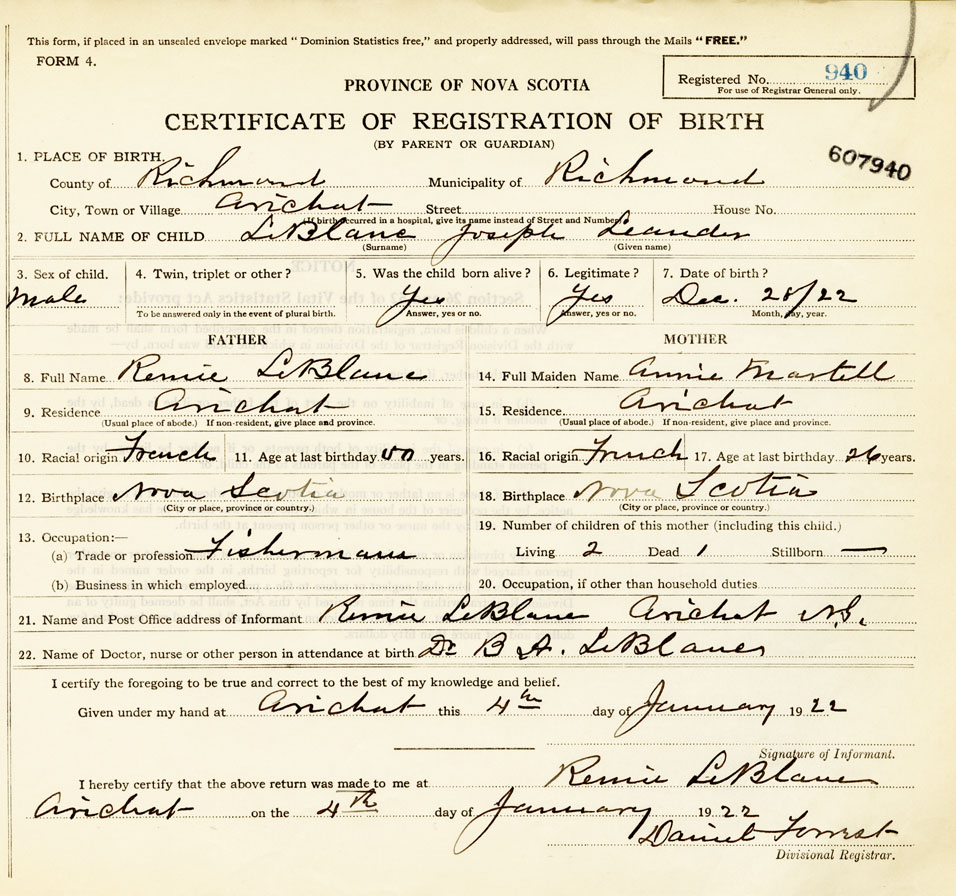 This form, if placed in an unsealed envelope marked "Dominion Statistics free," and properly addressed, will pass through the Mails "FREE."
FORM 4.
Registered No. 940
For use of Registrar General only.
PROVINCE OF NOVA SCOTIA
CERTIFICATE OF REGISTRATION OF BIRTH
(BY PARENT OR GUARDIAN)
607940
1. PLACE OF BIRTH.
County of Richmond Municipality of Richmond
City, Town or Village Arichat Street House No.
(If birth occurred in a hospital, give its name instead of Street and Number)
2. FULL NAME OF CHILD LeBlanc Joseph Leander
(Surname) (Given name)
3. Sex of child. 4. Twin, triplet or other? 5. Was the child born alive? 6. Legitimate? 7. Date of birth?
Male Yes Yes Dec. 28/22
To be answered only in the event of plural birth. Answer, yes or no. Answer, yes or no. Month, day, year.
FATHER MOTHER
8. Full Name Remie LeBlanc 14. Full Maiden Name Annie Martell
9. Residence Arichat 15. Residence. Arichat
(Usual place of abode.) If non-resident, give place and province. (Usual place of abode.) If non-resident, give place and province.
10. Racial origin French 11. Age at last birthday years. 16. Racial origin French 17. Age at last birthday 26 years.
12. Birthplace Nova Scotia 18. Birthplace Nova Scotia
(City or place, province or country.) (City or place, province or country.)
13. Occupation:— 19. Number of children of this mother (including this child.)
(a) Trade or profession Fishermann Living 2 Dead 1 Stillborn —
(b) Business in which employed 20. Occupation, if other than household duties
21. Name and Post Office address of Informant Remie LeBlanc Arichat N.S.
22. Name of Doctor, nurse or other person in attendance at birth Dr B A. LeBlanc
I certify the foregoing to be true and correct to the best of my knowledge and belief.
Given under my hand at Arichat this 4th day of January 1922
Signature of Informant.
I hereby certify that the above return was made to me at Remie LeBlanc
Arichat on the 4th day of January 1922
Daniel Forrest
Divisional Registrar.